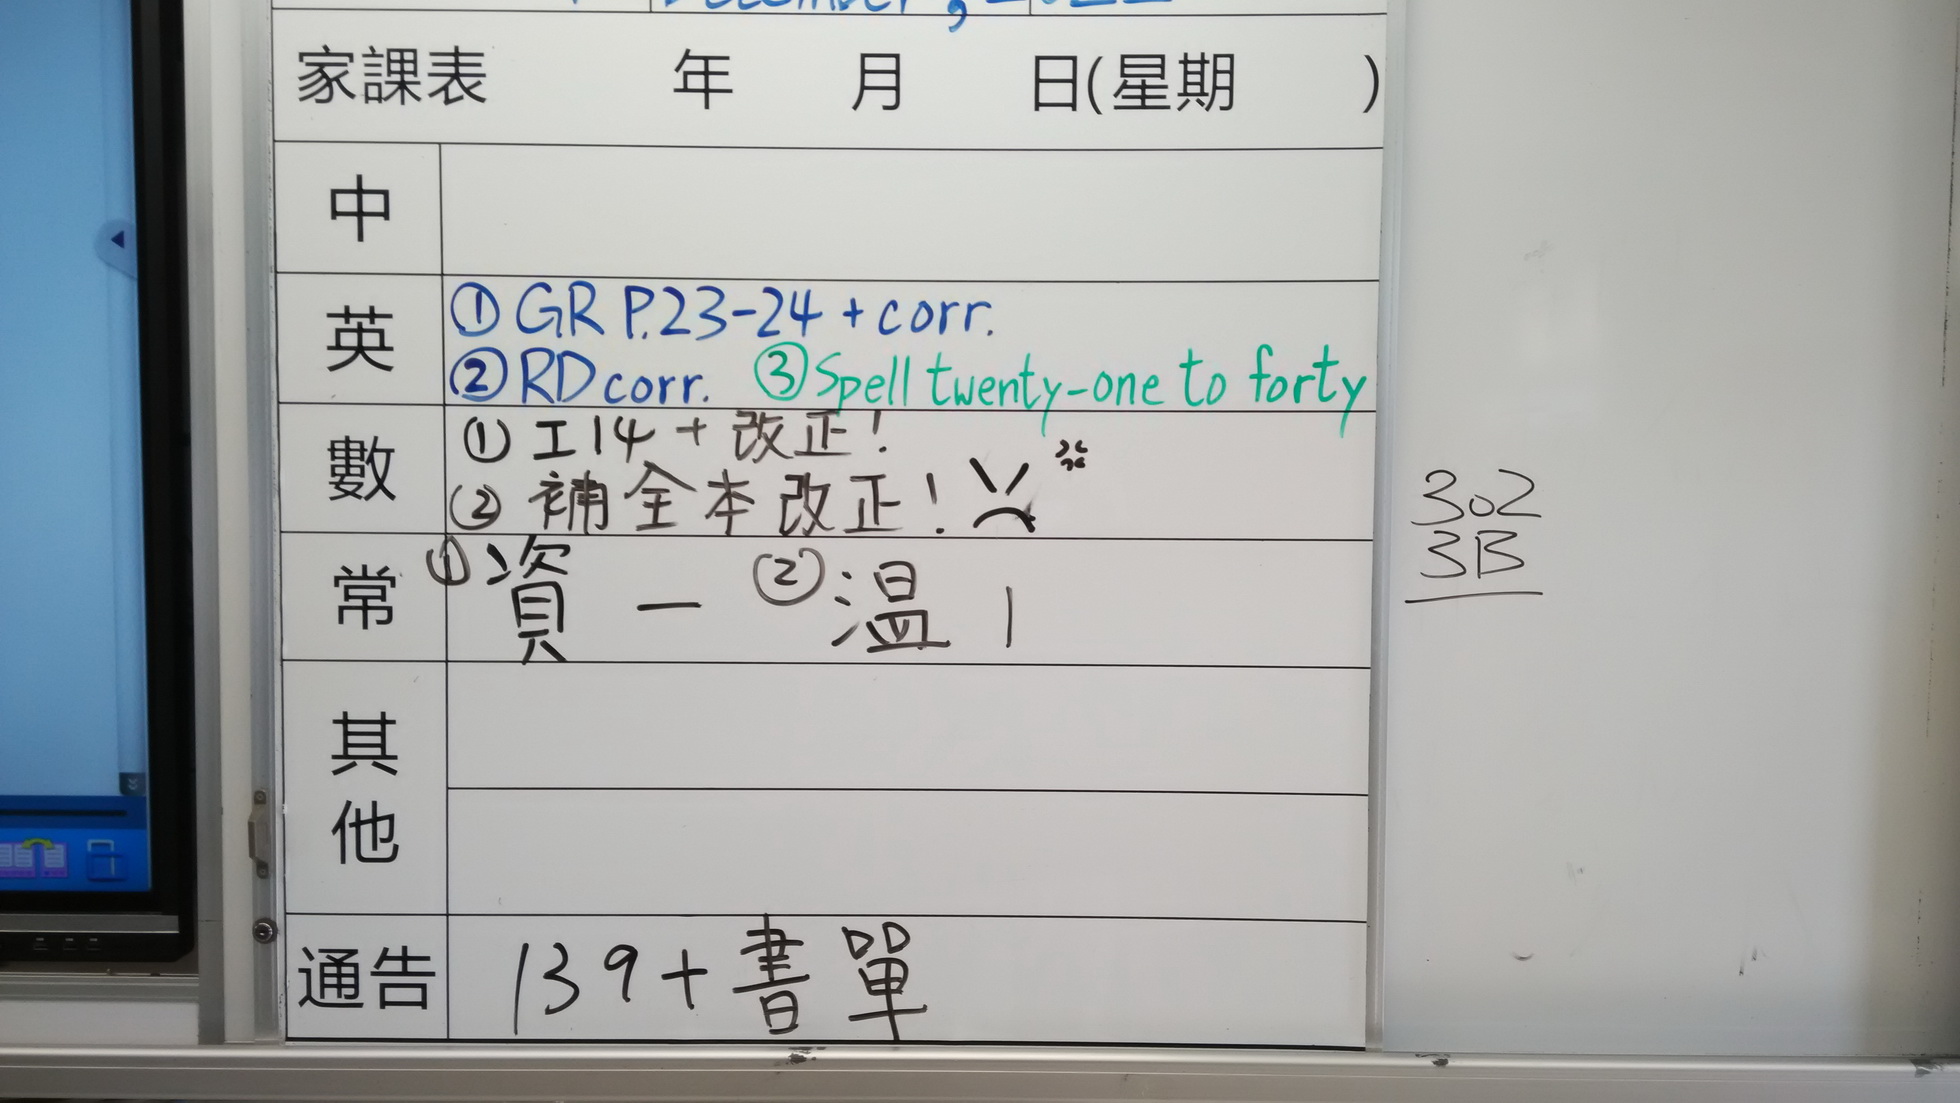 December, 2022
家課表 年 月 日(星期 )
中
英
① GR P.23-24 + corr.
② RD corr. ③ Spell twenty-one to forty
數
① 工14 + 改正!
② 補全本改正!
常
① 資一 ② 温1
其他
通告
139+書單
302
3B